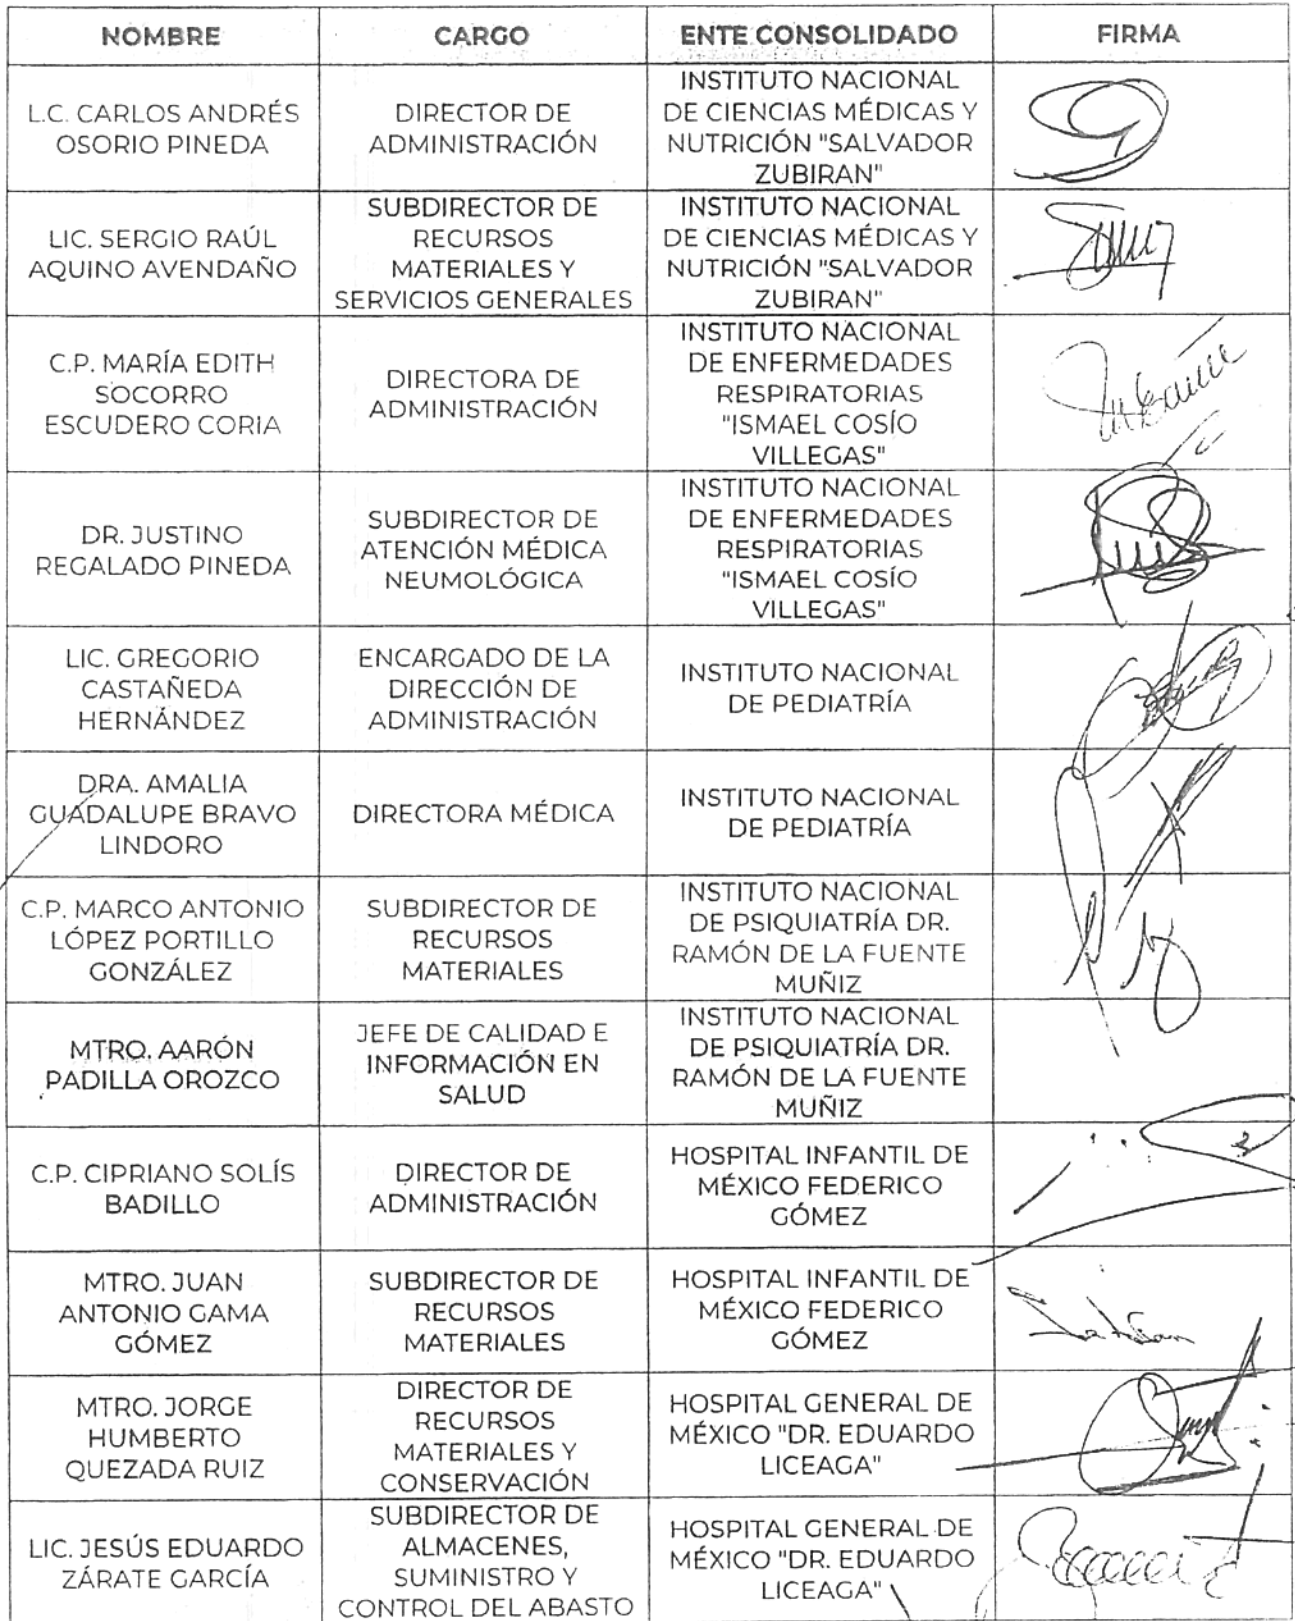 NOMBRE CARGO ENTE CONSOLIDADO FIRMA
L.C. CARLOS ANDRÉS
OSORIO PINEDA
DIRECTOR DE
ADMINISTRACIÓN
INSTITUTO NACIONAL
DE CIENCIAS MÉDICAS Y
NUTRICIÓN "SALVADOR
ZUBIRAN"
LIC. SERGIO RAÚL
AQUINO AVENDAÑO
SUBDIRECTOR DE
RECURSOS
MATERIALES Y
SERVICIOS GENERALES
INSTITUTO NACIONAL
DE CIENCIAS MÉDICAS Y
NUTRICIÓN "SALVADOR
ZUBIRAN"
C.P. MARÍA EDITH
SOCORRO
ESCUDERO CORIA
DIRECTORA DE
ADMINISTRACIÓN
INSTITUTO NACIONAL
DE ENFERMEDADES
RESPIRATORIAS
"ISMAEL COSÍO
VILLEGAS"
DR. JUSTINO
REGALADO PINEDA
SUBDIRECTOR DE
ATENCIÓN MÉDICA
NEUMOLÓGICA
INSTITUTO NACIONAL
DE ENFERMEDADES
RESPIRATORIAS
"ISMAEL COSÍO
VILLEGAS"
LIC. GREGORIO
CASTAÑEDA
HERNÁNDEZ
ENCARGADO DE LA
DIRECCIÓN DE
ADMINISTRACIÓN
INSTITUTO NACIONAL
DE PEDIATRÍA
DRA. AMALIA
GUADALUPE BRAVO
LINDORO
DIRECTORA MÉDICA
INSTITUTO NACIONAL
DE PEDIATRÍA
C.P. MARCO ANTONIO
LÓPEZ PORTILLO
GONZÁLEZ
SUBDIRECTOR DE
RECURSOS
MATERIALES
INSTITUTO NACIONAL
DE PSIQUIATRÍA DR.
RAMÓN DE LA FUENTE
MUÑIZ
MTRO. AARÓN
PADILLA OROZCO
JEFE DE CALIDAD E
INFORMACIÓN EN
SALUD
INSTITUTO NACIONAL
DE PSIQUIATRÍA DR.
RAMÓN DE LA FUENTE
MUÑIZ
C.P. CIPRIANO SOLÍS
BADILLO
DIRECTOR DE
ADMINISTRACIÓN
HOSPITAL INFANTIL DE
MÉXICO FEDERICO
GÓMEZ
MTRO. JUAN
ANTONIO GAMA
GÓMEZ
SUBDIRECTOR DE
RECURSOS
MATERIALES
HOSPITAL INFANTIL DE
MÉXICO FEDERICO
GÓMEZ
MTRO. JORGE
HUMBERTO
QUEZADA RUIZ
DIRECTOR DE
RECURSOS
MATERIALES Y
CONSERVACIÓN
HOSPITAL GENERAL DE
MÉXICO "DR. EDUARDO
LICEAGA"
LIC. JESÚS EDUARDO
ZÁRATE GARCÍA
SUBDIRECTOR DE
ALMACENES,
SUMINISTRO Y
CONTROL DEL ABASTO
HOSPITAL GENERAL DE
MÉXICO "DR. EDUARDO
LICEAGA"